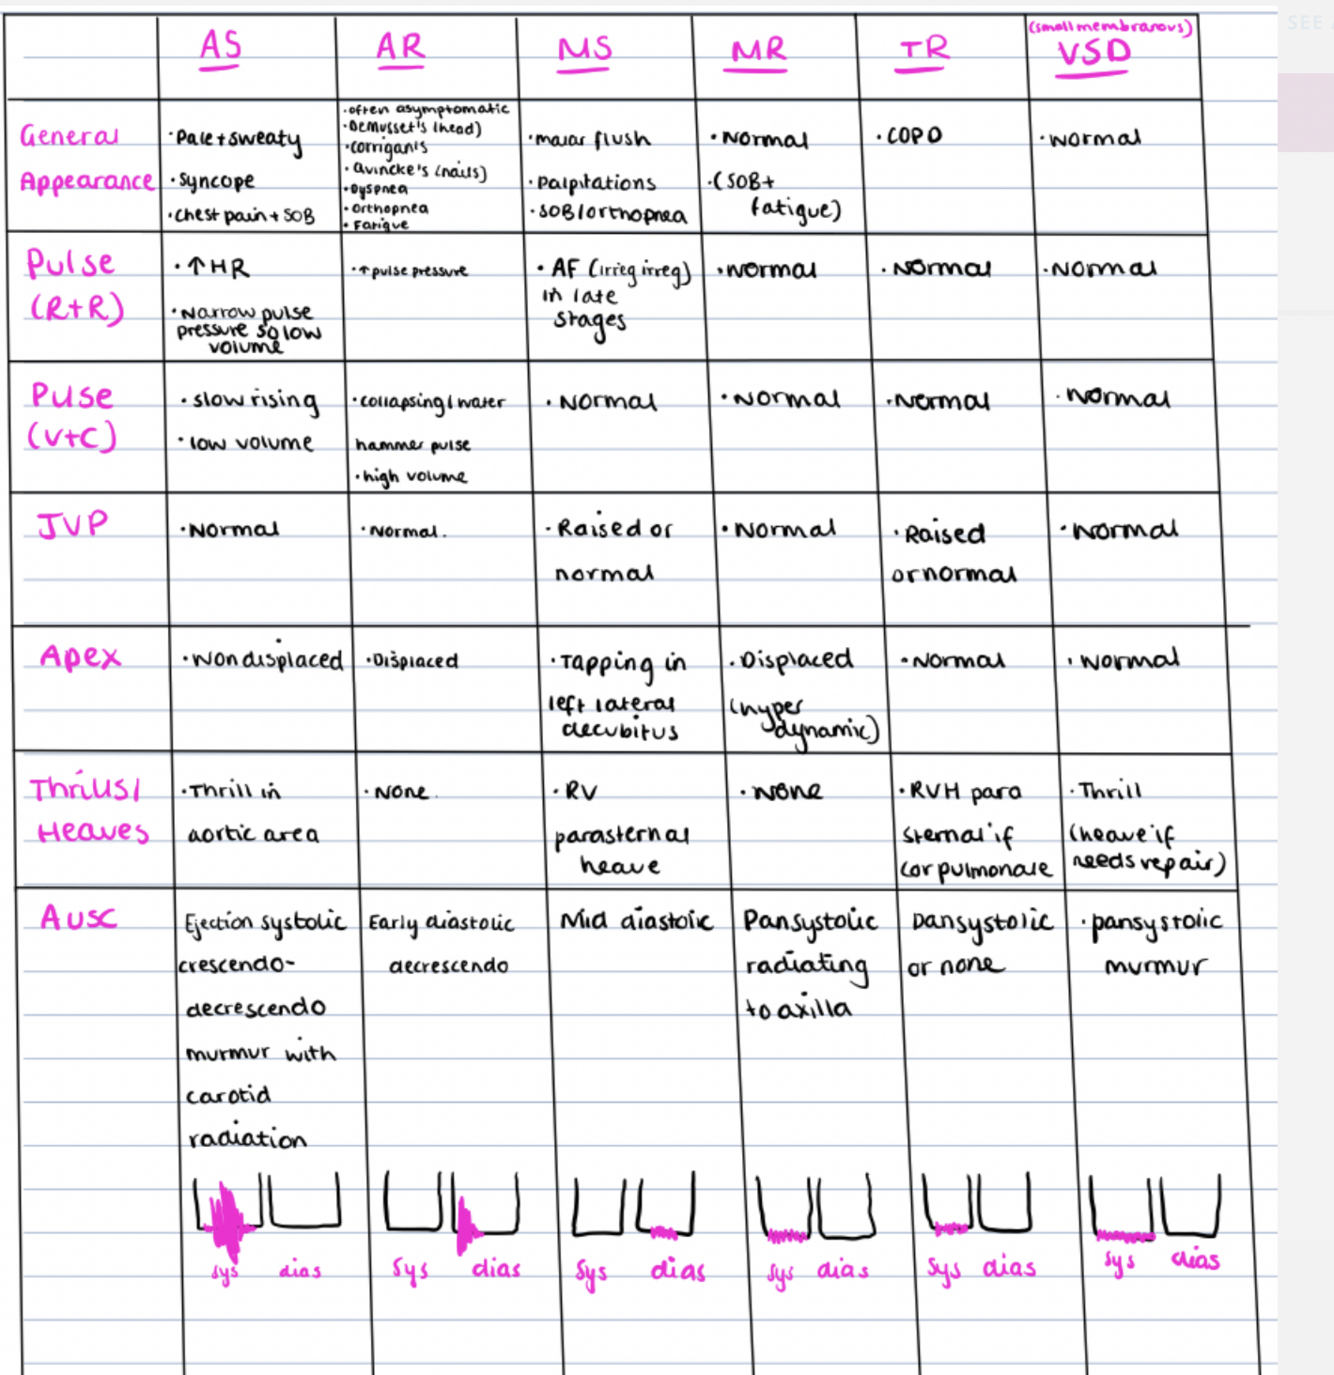 SEE
(small membranous)
AS AR MS MR TR VSD
General
Appearance
· Pale + sweaty
· Syncope
· Chest pain + SOB
· often asymptomatic
· DeMusset's (head)
· Corrigan's
· Quincke's (nails)
· Dyspnea
· Orthopnea
· Fatigue
· malar flush
· Palpitations
· SOB/orthopnea
· Normal
· (SOB +
fatigue)
· COPD
· Normal
Pulse
(R+R)
· ↑ HR
· Narrow pulse
pressure so low
volume
· ↑ pulse pressure
· AF (irreg irreg)
in late
stages
· Normal
· Normal
· Normal
Pulse
(V+C)
· slow rising
· low volume
· collapsing/water
hammer pulse
· high volume
· Normal
· Normal
· Normal
· Normal
JVP
· Normal
· Normal.
· Raised or
normal
· Normal
· Raised
or normal
· Normal
Apex
· Non displaced
· Displaced
· Tapping in
left lateral
decubitus
· Displaced
(hyper
dynamic)
· Normal
· Normal
Thrills/
Heaves
· Thrill in
aortic area
· None.
· RV
parasternal
heave
· None
· RVH para
sternal if
cor pulmonale
· Thrill
(heave if
needs repair)
Ausc
Ejection systolic
crescendo-
decrescendo
murmur with
carotid
radiation
Early diastolic
decrescendo
Mid diastolic
Pansystolic
radiating
to axilla
Pansystolic
or none
· pansystolic
murmur
sys dias
sys dias
sys dias
sys dias
sys dias
sys dias